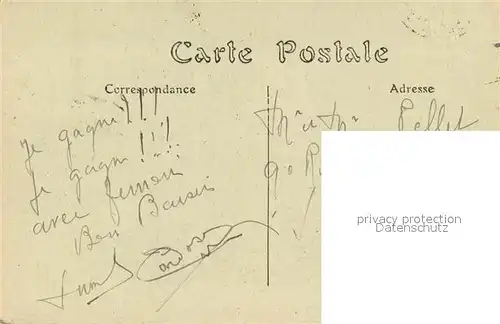 Carte Postale
Correspondance
Adresse
Je gagne!!!
Je gagne!!!
avec
Bon Baisers
Mr et Me Pellet
90 R
privacy protection
Datenschutz